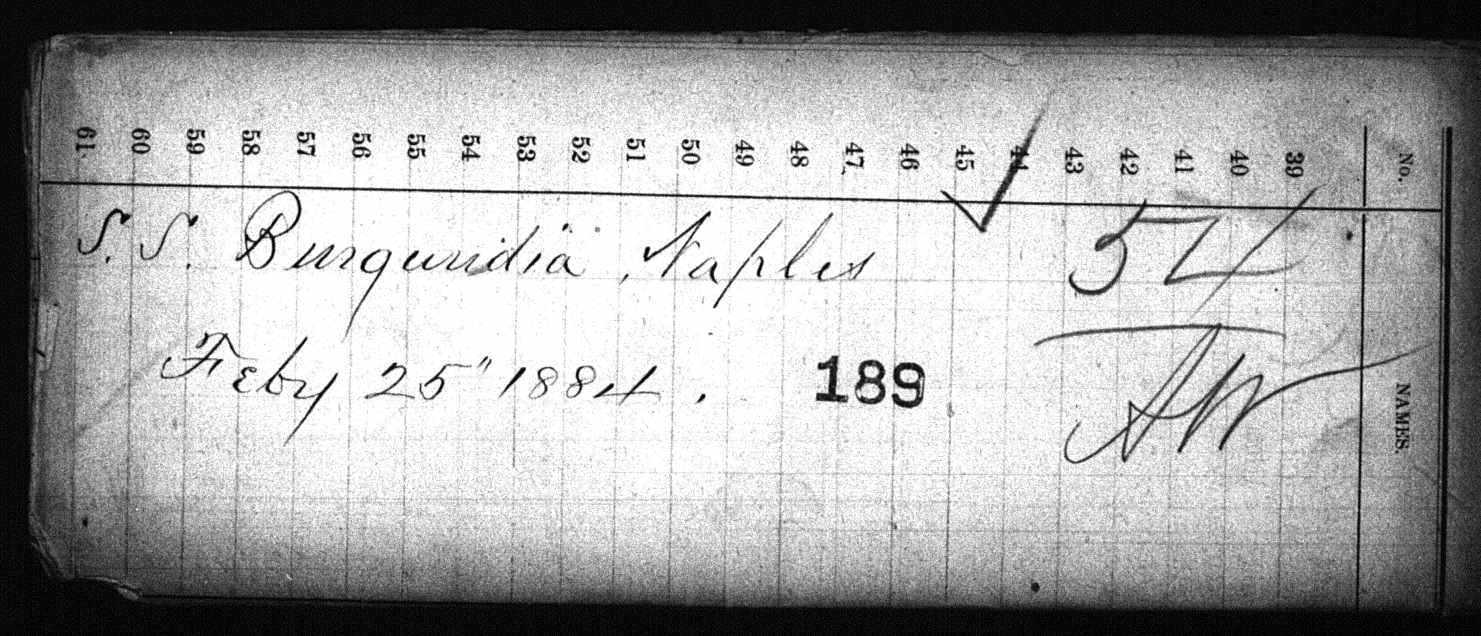 61. 60 59 58 57 56 55 54 53 52 51 50 49 48 47. 46 45 44 43 42 41 40 39 No.
S. S. Burgundia, Naples 54
Feby 25" 1884. 189
NAMES.